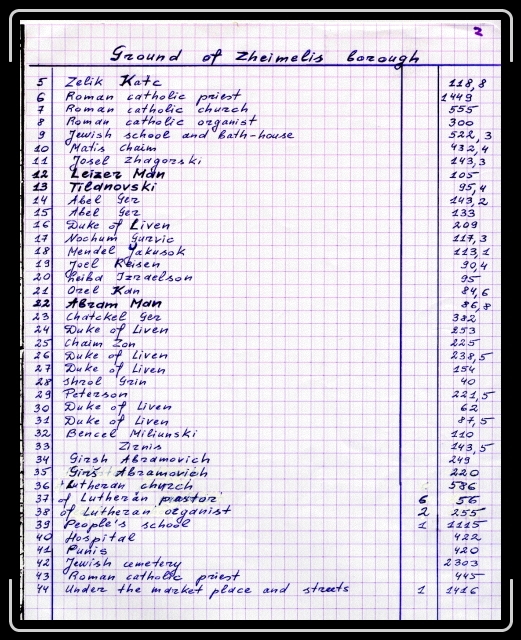 2
Ground of Zheimelis borough
5 Zelik Katc 118,8
6 Roman catholic priest 1449
7 Roman catholic church 555
8 Roman catholic organist 300
9 Jewish school and bath-house 522,3
10 Matis Chaim 432,4
11 Josel Zhagorski 143,3
12 Leizer Man 105
13 Tildnovski 95,4
14 Abel Ger 143,2
15 Abel Ger 133
16 Duke of Liven 209
17 Nochum Gurvic 117,3
18 Mendel Jakusok 113,1
19 Joel Reisen 90,4
20 Leiba Izraelson 95
21 Orel Kan 84,6
22 Abram Man 86,8
23 Chatckel Ger 382
24 Duke of Liven 253
25 Chaim Zon 225
26 Duke of Liven 238,5
27 Duke of Liven 154
28 Shrol Grin 40
29 Peterson 221,5
30 Duke of Liven 62
31 Duke of Liven 87,5
32 Bencel Miliunski 110
33 Zirnis 143,5
34 Girsh Abramovich 249
35 Girs Abramovich 220
36 Lutheran church 586
37 of Lutheran pastor 6 56
38 of Lutheran organist 2 255
39 People's school 1 1115
40 Hospital 422
41 Punis 420
42 Jewish cemetery 2303
43 Roman catholic priest 445
44 Under the market place and streets 1 1416